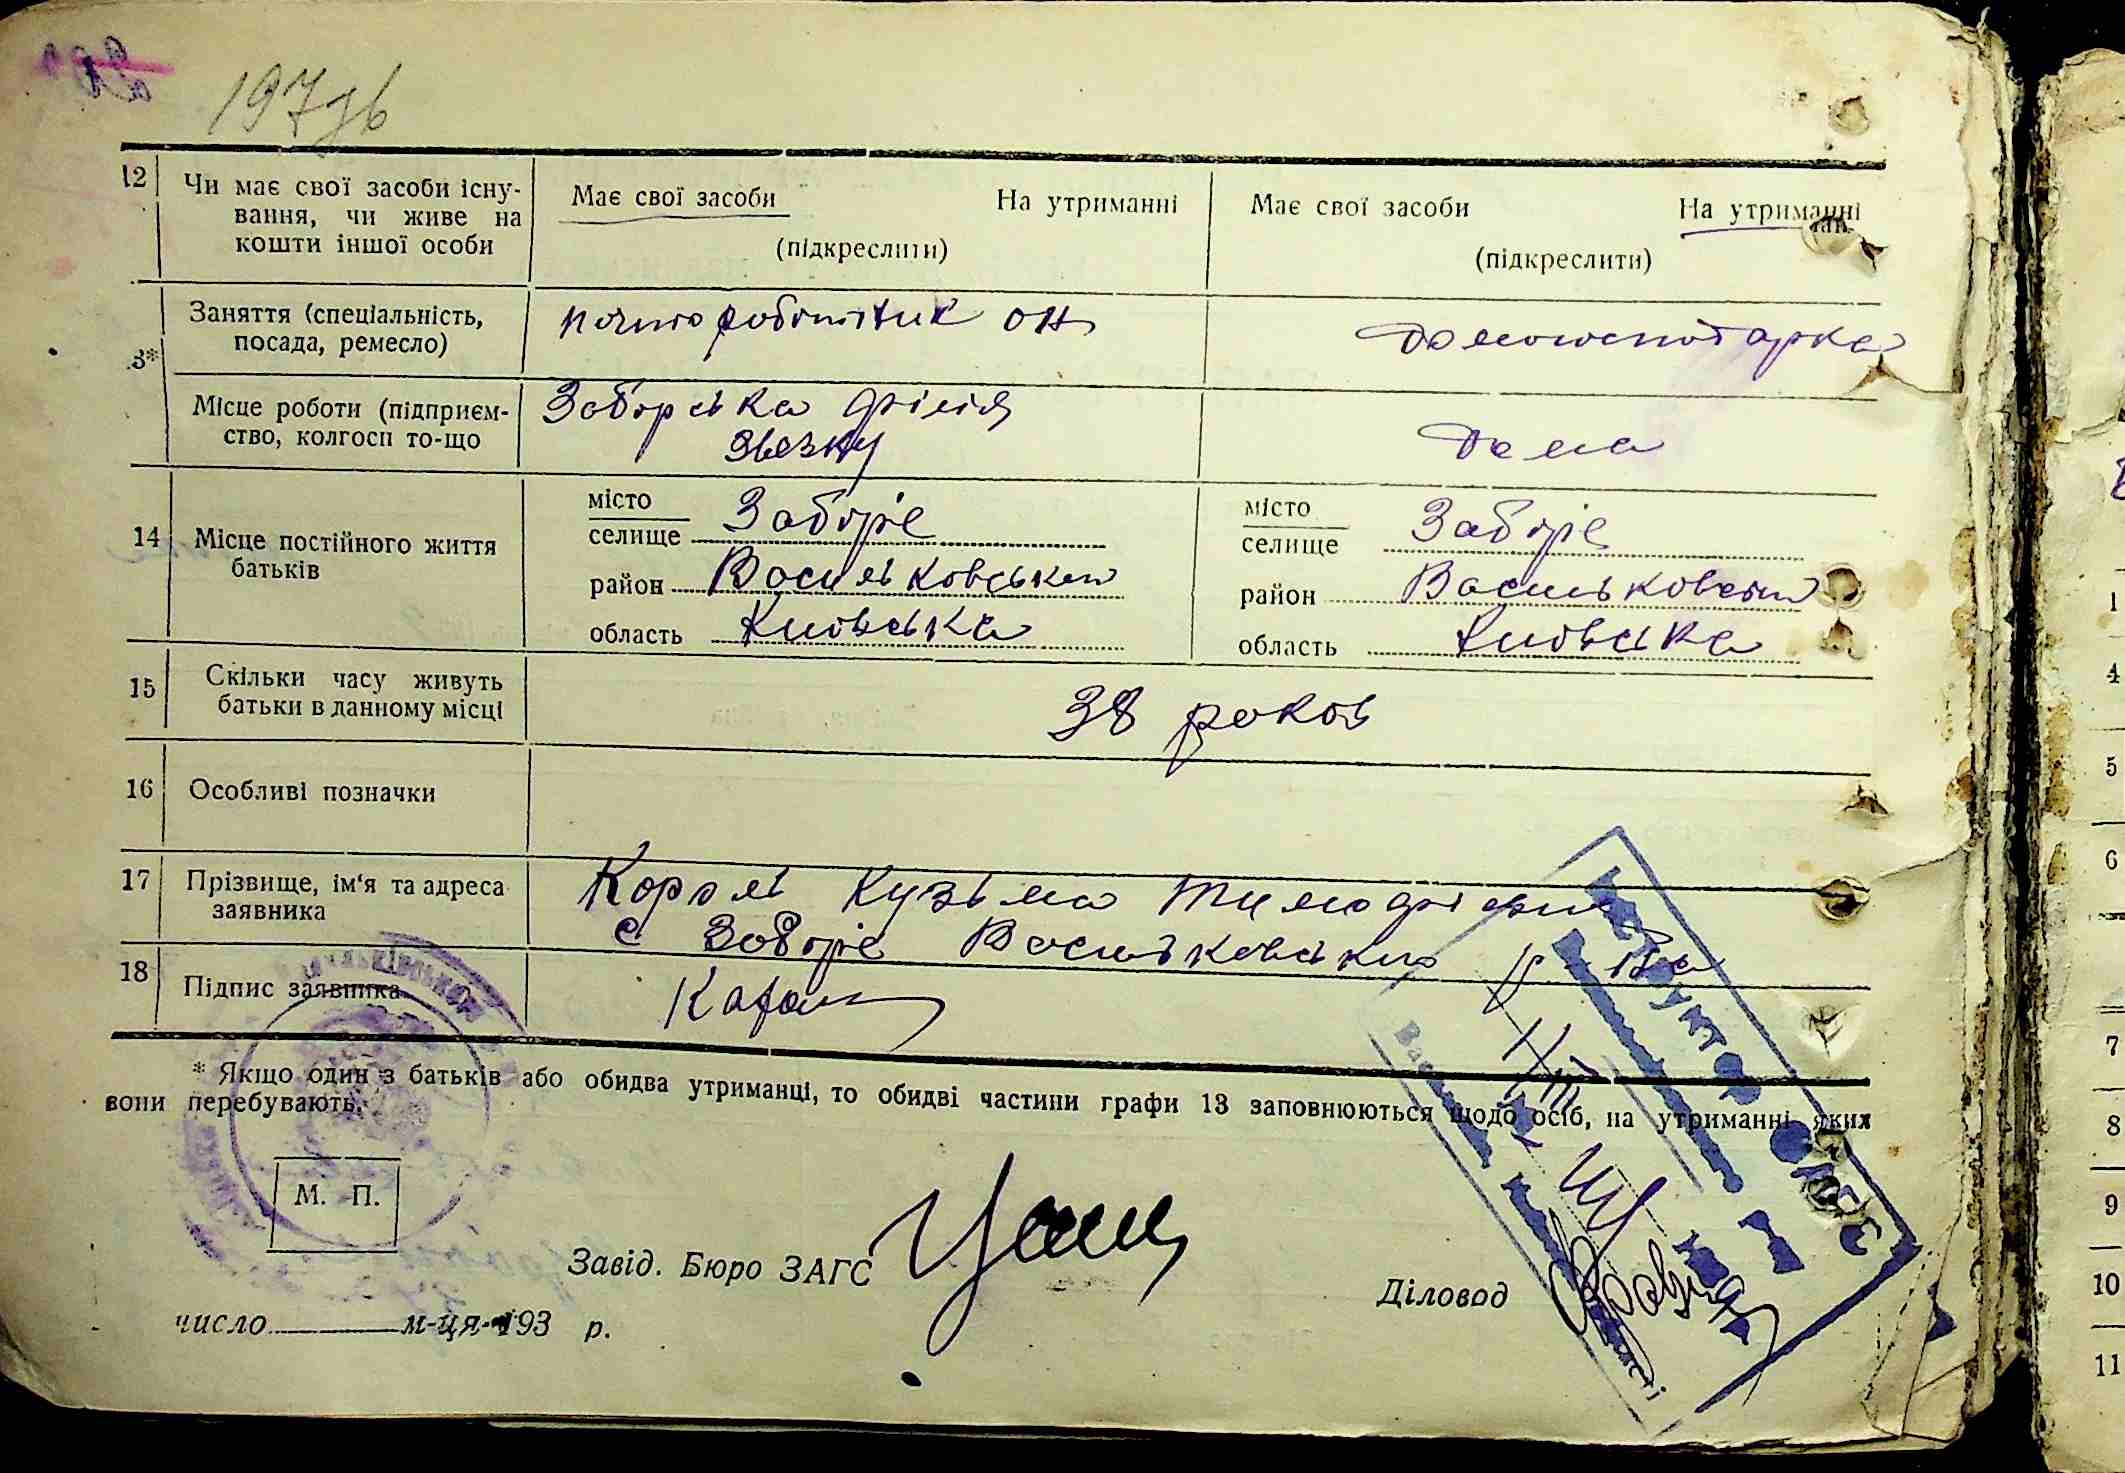 197зв
12 Чи має свої засоби існу-
вання, чи живе на
кошти іншої особи
Має свої засоби На утриманні
(підкреслити)
Має свої засоби На утриманні
(підкреслити)
13* Заняття (спеціальність,
посада, ремесло)
почторобітник
домогосподарка
Місце роботи (підприєм-
ство, колгосп то-що
Заборська філія
звезку
дома
14 Місце постійного життя
батьків
місто
селище Забір'є
район Васильковський
область Київська
місто
селище Забір'є
район Васильковський
область Київська
15 Скільки часу живуть
батьки в данному місці
38 роков
16 Особливі позначки
17 Прізвище, ім'я та адреса
заявника
Король Кузьма Тимофієвич
с Заборіє Васильковський р-на
18 Підпис заявника
* Якщо один з батьків або обидва утриманці, то обидві частини графи 13 заповнюються щодо осіб, на утриманні яких
вони перебувають.
М. П.
Завід. Бюро ЗАГС
Діловод
число м-ця 193 р.
ІНСТРУКТОР ЗАГС
1
4
5
6
7
8
9
10
11